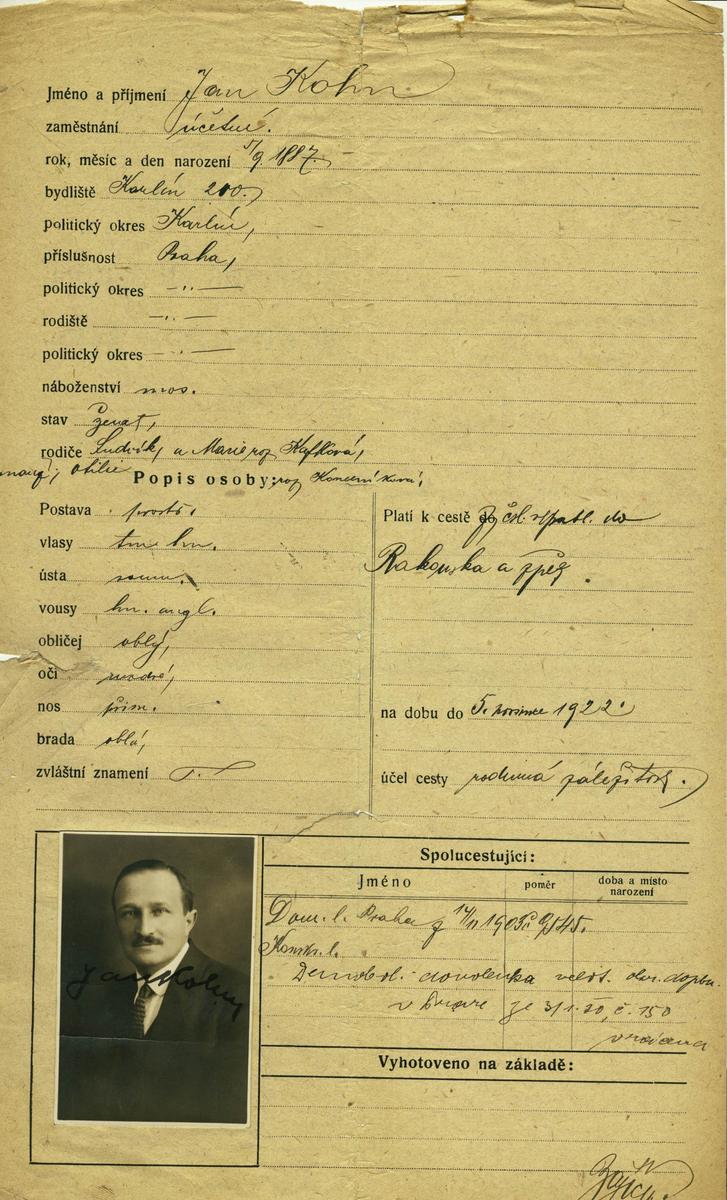 Jméno a příjmení Jan Kohn
zaměstnání účetní.
rok, měsíc a den narození 5/9 1887.
bydliště Karlín 200.
politický okres Karlín,
příslušnost Praha,
politický okres —"—
rodiště —"—
politický okres —"—
náboženství mos.
stav ženat,
rodiče Ludvík, a Marie roz. Kafková,
Otilie roz.
Popis osoby:
Postava prostř.
vlasy tm. hn.
ústa soum.
vousy hn. angl.
obličej oblý,
oči modré,
nos přim.
brada oblá,
zvláštní znamení
Platí k cestě do z čsl. republ. do
Rakouska a zpět.
na dobu do 5. 1922.
účel cesty rodinná záležitost.
Spolucestující:
Jméno poměr doba a místo narození
Dom. l. Praha z 14/11 1903
Demobil. dovolenka velit. okr. doplň.
v ze 3/1.20, č. 150
vrácena
Jan Kohn
Vyhotoveno na základě: